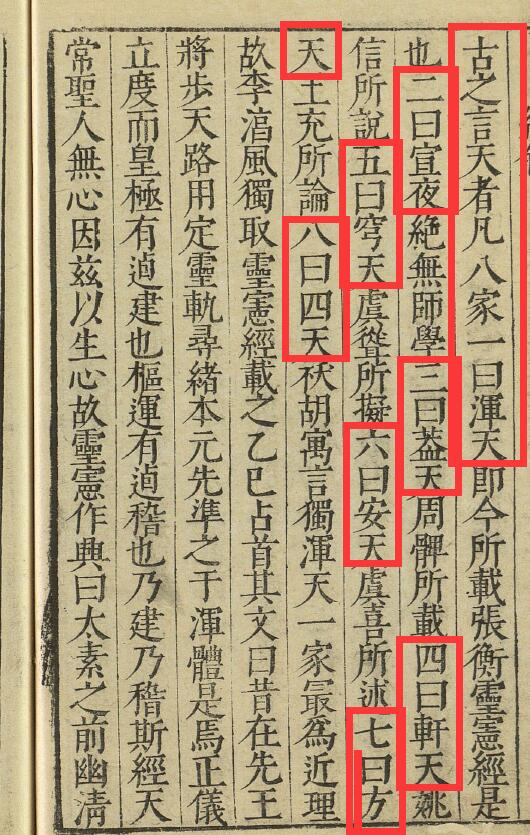 古之言天者凡八家一曰渾天即今所載張衡靈憲經是
也二曰宣夜絶無師學三曰葢天周髀所載四曰軒天姚
信所說五曰穹天虞聳所擬六曰安天虞喜所述七曰方
天王充所論八曰四天祅胡寓言獨渾天一家㝡為近理
故李湻風獨取靈憲經載之乙巳占首其文曰昔在先王
將步天路用定靈軌尋緒本元先準之于渾體是爲正儀
立度而皇極有逌建也樞運有逌稽也乃建乃稽斯經天
常聖人無心因茲以生心故靈憲作典曰太素之前幽清